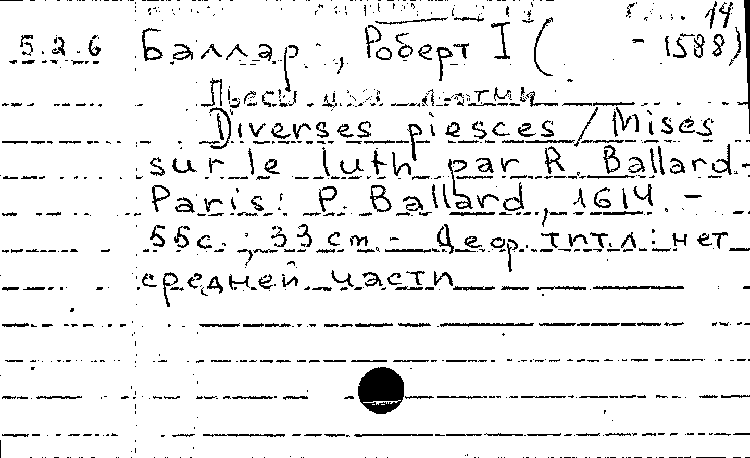 14
5.2.6 Баллар, Роберт I ( - 1588)
Пьесы для лютни
Diverses piesces / Mises
sur le luth par R. Ballard.-
Paris: P. Ballard, 1614. -
55с.; 33 cm.- Деф. тит.л: нет
средней части